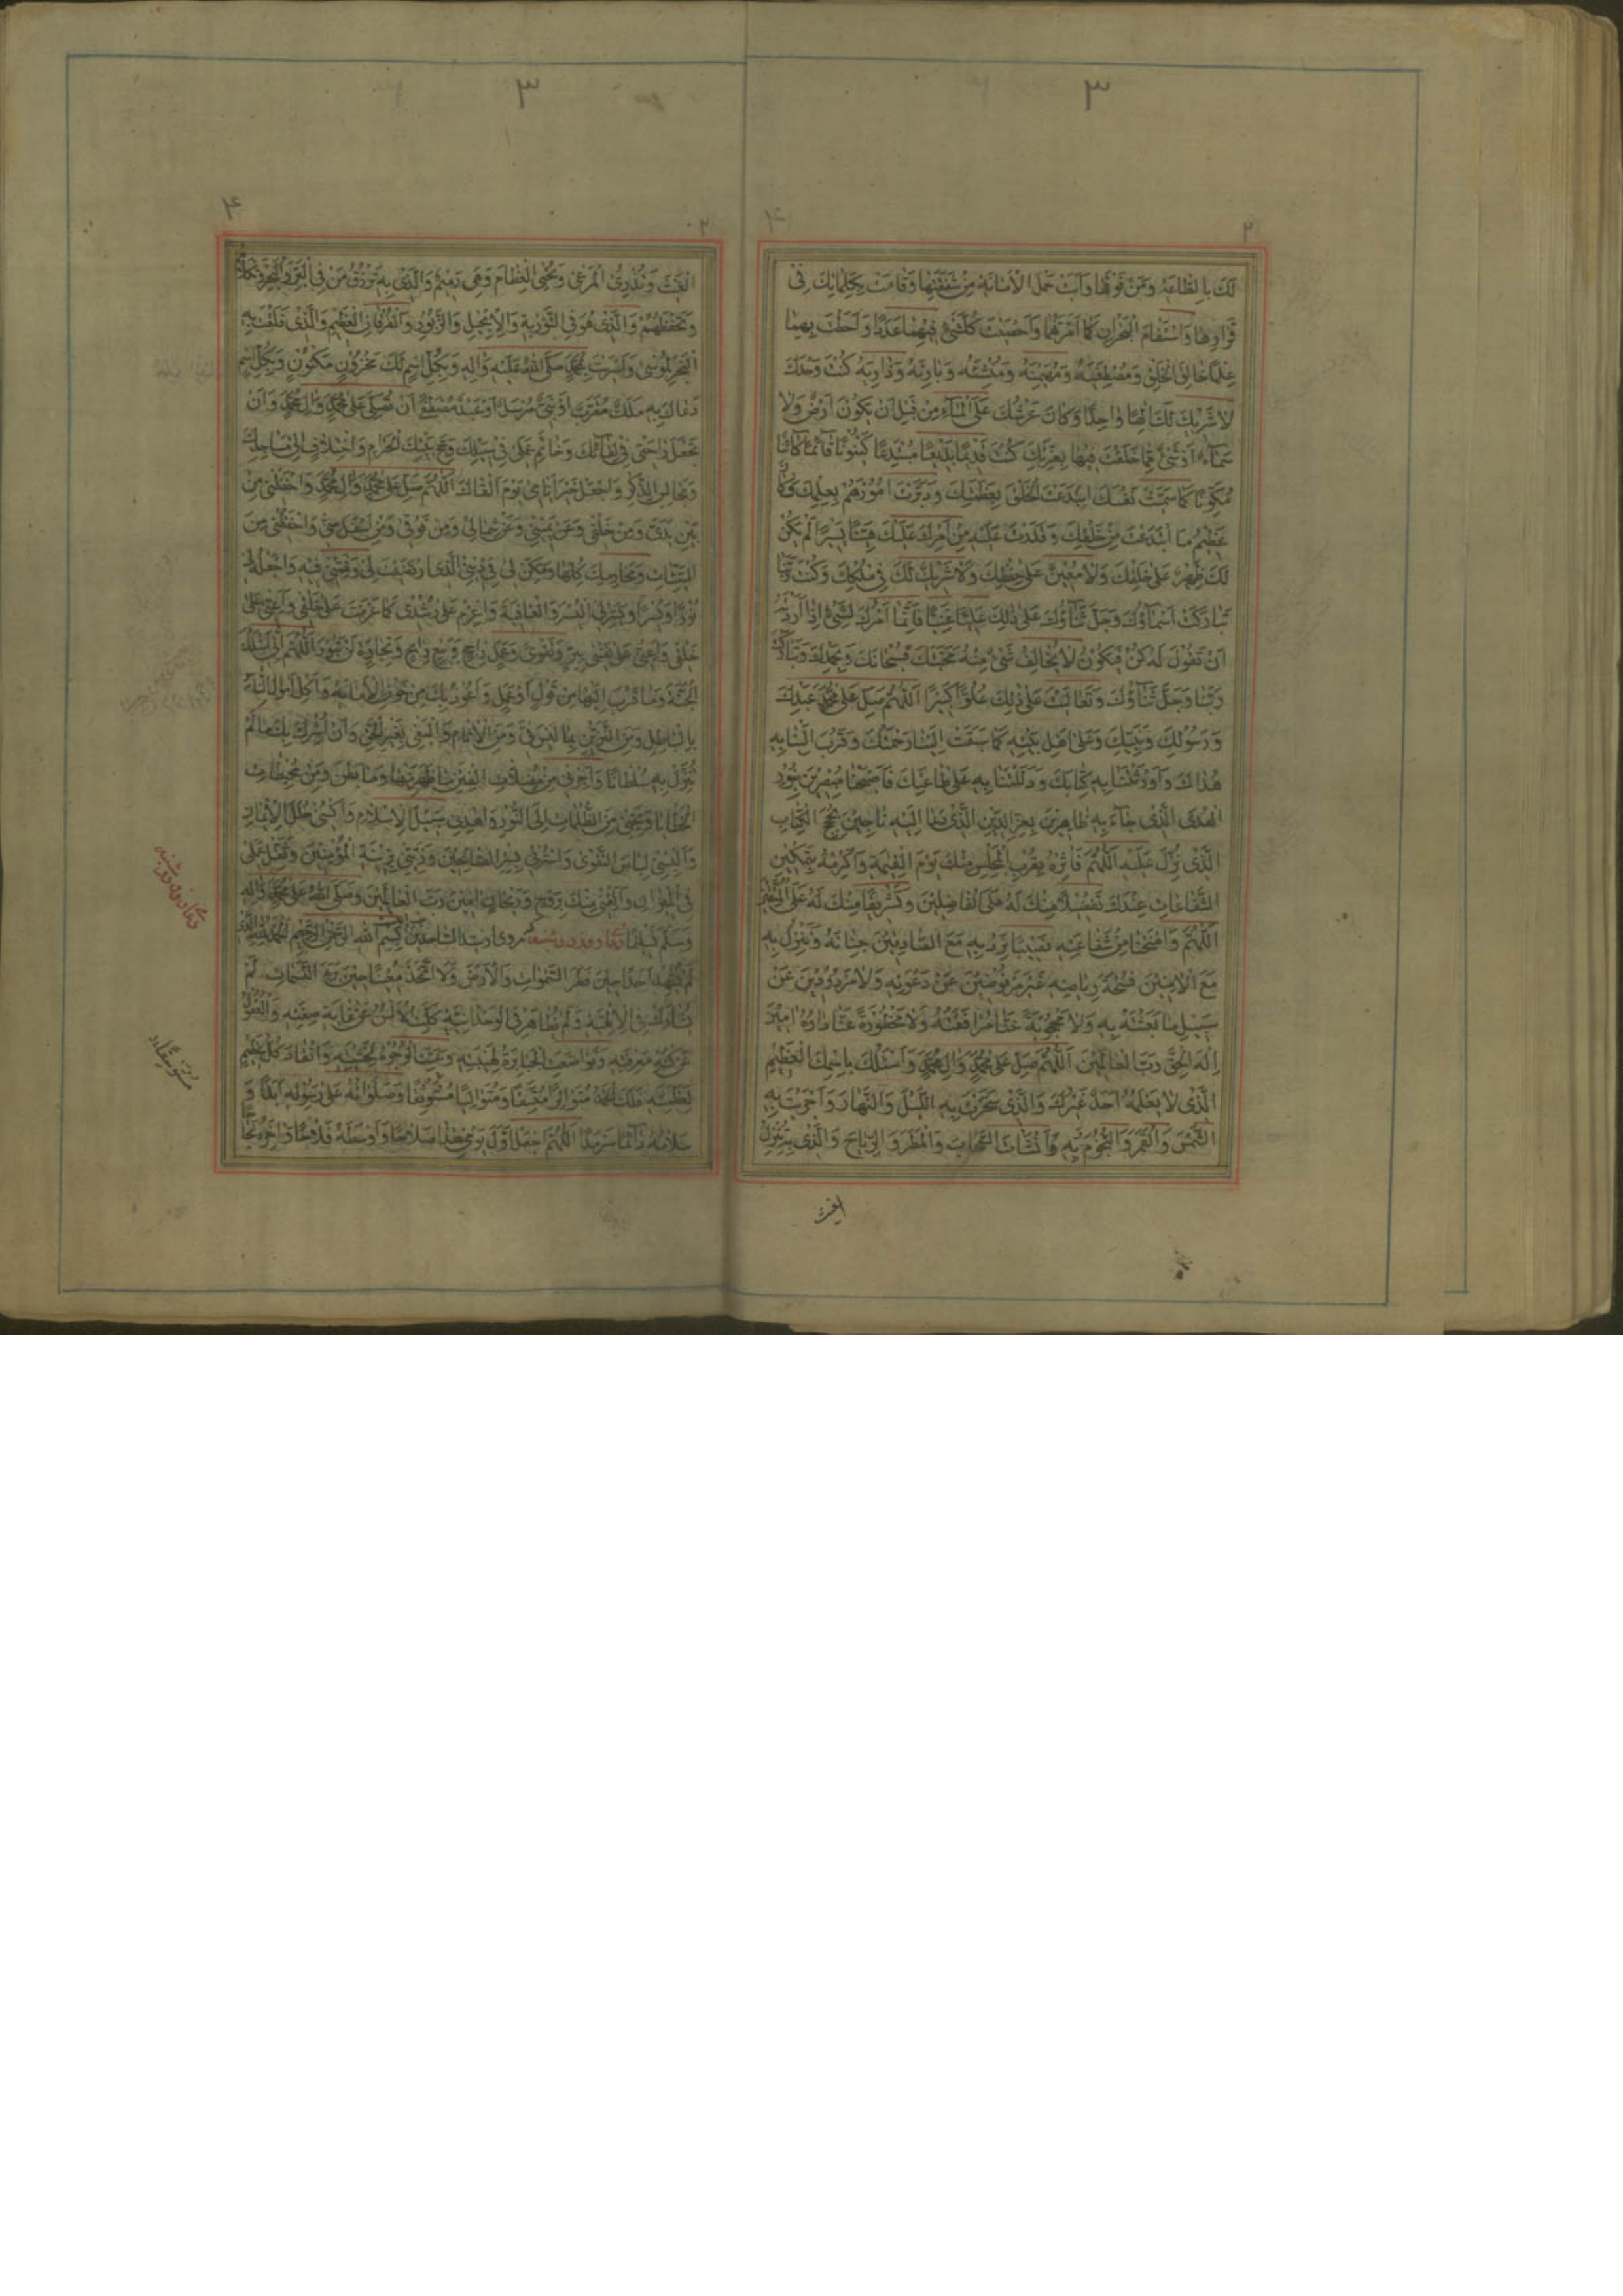 ۳
۲
لَكَ بِالطَّاعَةِ وَمَنْ فَوْقَهَا وَأَبَتْ حَمْلَ الْأَمَانَةِ مِنْ شَفَقَتِهَا وَقَامَتْ بِكَلِمَاتِكَ فِي
قَرَارِهَا وَاسْتَقَامَ الْبَحْرَانِ كَمَا أَمَرْتَهُمَا وَأَحْصَيْتَ كُلَّ شَيْءٍ مِنْهُمَا عَدَدًا وَأَحَطْتَ بِهِمَا
عِلْمًا خَالِقَ الْخَلْقِ وَمُصْطَفِيَهُ وَمُهَيْمِنَهُ وَمُنْشِئَهُ وَبَارِئَهُ وَذَارِئَهُ كُنْتَ وَحْدَكَ
لَا شَرِيكَ لَكَ إِلٰهًا وَاحِدًا وَكَانَ عَرْشُكَ عَلَى الْمَاءِ مِنْ قَبْلِ أَنْ يَكُونَ أَرْضٌ وَلَا
سَمَاءٌ أَوْ شَيْءٌ مِمَّا خَلَقْتَ فِيهِمَا بِعِزَّتِكَ كُنْتَ قَدِيمًا بَدِيعًا مُبْتَدِعًا كَيْنُونًا قَائِمًا كَائِنًا
مُكَوِّنًا كَمَا سَمَّيْتَ نَفْسَكَ ابْتَدَعْتَ الْخَلْقَ بِعَظَمَتِكَ وَدَبَّرْتَ أُمُورَهُمْ بِعِلْمِكَ وَكَانَ
عَظِيمُ مَا ابْتَدَعْتَ مِنْ خَلْقِكَ وَقَدَّرْتَ عَلَيْهِ مِنْ أَمْرِكَ عَلَيْكَ هَيِّنًا يَسِيرًا لَمْ يَكُنْ
لَكَ ظَهِيرٌ عَلَى خَلْقِكَ وَلَا مُعِينٌ عَلَى حِفْظِكَ وَلَا شَرِيكٌ لَكَ فِي مُلْكِكَ وَكُنْتَ رَبَّنَا
تَبَارَكَتْ أَسْمَاؤُكَ وَجَلَّ ثَنَاؤُكَ عَلَى ذٰلِكَ عَلِيًّا غَنِيًّا فَإِنَّمَا أَمْرُكَ لِشَيْءٍ إِذَا أَرَدْتَهُ
أَنْ تَقُولَ لَهُ كُنْ فَيَكُونُ لَا يُخَالِفُ شَيْءٌ مِنْهُ مَحَبَّتَكَ فَسُبْحَانَكَ وَبِحَمْدِكَ وَتَبَارَكْتَ
رَبَّنَا وَجَلَّ ثَنَاؤُكَ وَتَعَالَيْتَ عَلَى ذٰلِكَ عُلُوًّا كَبِيرًا اَللّٰهُمَّ صَلِّ عَلَى مُحَمَّدٍ عَبْدِكَ
وَرَسُولِكَ وَنَبِيِّكَ وَعَلَى أَهْلِ بَيْتِهِ كَمَا سَبَقَتْ إِلَيْنَا رَحْمَتُكَ وَقَرُبَ إِلَيْنَا بِهِ
هُدَاكَ وَأَوْرَثْتَنَا بِهِ كِتَابَكَ وَدَلَلْتَنَا بِهِ عَلَى طَاعَتِكَ فَأَصْبَحْنَا مُبْصِرِينَ بِنُورِ
الْهُدَى الَّذِي جَاءَ بِهِ ظَاهِرِينَ بِعِزِّ الدِّينِ الَّذِي دَعَا إِلَيْهِ نَاجِينَ بِحُجَجِ الْكِتَابِ
الَّذِي نُزِّلَ عَلَيْهِ اَللّٰهُمَّ فَآثِرْهُ بِقُرْبِ الْمَجْلِسِ مِنْكَ يَوْمَ الْقِيٰمَةِ وَأَكْرِمْهُ بِتَمْكِينِ
الشَّفَاعَاتِ عِنْدَكَ تَفْضِيلًا مِنْكَ لَهُ عَلَى الْفَاضِلِينَ وَتَشْرِيفًا مِنْكَ لَهُ عَلَى الْمُتَّقِينَ
اَللّٰهُمَّ وَامْنَحْنَا مِنْ شَفَاعَتِهِ نَصِيبًا نَرِدُ بِهِ مَعَ الصَّادِقِينَ جِنَانَهُ وَنَنْزِلُ بِهِ
مَعَ الْآمِنِينَ فُسْحَةَ رِيَاضِهِ غَيْرَ مَرْفُوضِينَ عَنْ دَعْوَتِهِ وَلَا مَرْدُودِينَ عَنْ
سَبِيلِ مَا بَعَثْتَهُ بِهِ وَلَا مَحْجُوبَةً عَنَّا مُرَافَقَتُهُ وَلَا مَحْظُورَةً عَنَّا دَارُهُ آمِينَ
إِلٰهَ الْحَقِّ رَبَّ الْعَالَمِينَ اَللّٰهُمَّ صَلِّ عَلَى مُحَمَّدٍ وَآلِ مُحَمَّدٍ وَأَسْئَلُكَ بِاسْمِكَ الْعَظِيمِ
الَّذِي لَا يَعْلَمُهُ أَحَدٌ غَيْرُكَ وَالَّذِي سَخَّرْتَ بِهِ اللَّيْلَ وَالنَّهَارَ وَأَجْرَيْتَ بِهِ
الشَّمْسَ وَالْقَمَرَ وَالنُّجُومَ بِهِ وَأَنْشَأْتَ السَّحَابَ وَالْمَطَرَ وَالرِّيَاحَ وَالَّذِي بِهِ تُنْزِلُ
الغيث
۳
۴
۲
الْغَيْثَ وَتُذْرِئُ الْمَرْعَى وَتُحْيِي الْعِظَامَ وَهِيَ رَمِيمٌ وَالَّذِي بِهِ تَرْزُقُ مَنْ فِي الْبَرِّ وَالْبَحْرِ وَتَكْلَؤُهُمْ
وَتَحْفَظُهُمْ وَالَّذِي هُوَ فِي التَّوْرٰيةِ وَالْإِنْجِيلِ وَالزَّبُورِ وَالْفُرْقَانِ الْعَظِيمِ وَالَّذِي فَلَقْتَ بِهِ
الْبَحْرَ لِمُوسَى وَأَسْرَيْتَ بِمُحَمَّدٍ صَلَّى اللهُ عَلَيْهِ وَآلِهِ وَبِكُلِّ اسْمٍ لَكَ مَخْزُونٍ مَكْنُونٍ وَبِكُلِّ اسْمٍ
دَعَاكَ بِهِ مَلَكٌ مُقَرَّبٌ أَوْ نَبِيٌّ مُرْسَلٌ أَوْ عَبْدٌ مُصْطَفًى أَنْ تُصَلِّيَ عَلَى مُحَمَّدٍ وَآلِ مُحَمَّدٍ وَأَنْ
تَجْعَلَ رَاحَتِي فِي لِقَائِكَ وَخَاتِمَ عَمَلِي فِي سَبِيلِكَ وَحَجِّ بَيْتِكَ الْحَرَامِ وَاخْتِلَافِي إِلَى مَسَاجِدِكَ
وَمَجَالِسِ الذِّكْرِ وَاجْعَلْ خَيْرَ أَيَّامِي يَوْمَ أَلْقَاكَ اَللّٰهُمَّ صَلِّ عَلَى مُحَمَّدٍ وَآلِ مُحَمَّدٍ وَاحْفَظْنِي مِنْ
بَيْنِ يَدَيَّ وَمِنْ خَلْفِي وَعَنْ يَمِينِي وَعَنْ شِمَالِي وَمِنْ فَوْقِي وَمِنْ أَسْفَلَ مِنِّي وَاحْفَظْنِي مِنَ
السَّيِّئَاتِ وَمَحَارِمِكَ كُلِّهَا وَمَكِّنْ لِي فِي دِينِيَ الَّذِي ارْتَضَيْتَ لِي وَفَقِّهْنِي فِيهِ وَاجْعَلْهُ لِي
نُورًا وَيَسِّرْ لِيَ الْيُسْرَ وَالْعَافِيَةَ وَاعْزِمْ عَلَى رُشْدِي كَمَا عَزَمْتَ عَلَى خَلْقِي وَأَعِنِّي عَلَى
نَفْسِي بِبِرٍّ وَتَقْوَى وَعَمَلٍ رَاجِحٍ وَبَيْعٍ رَابِحٍ وَتِجَارَةٍ لَنْ تَبُورَ اَللّٰهُمَّ إِنِّي أَسْئَلُكَ
الْجَنَّةَ وَمَا قَرَّبَ إِلَيْهَا مِنْ قَوْلٍ أَوْ عَمَلٍ وَأَعُوذُ بِكَ مِنْ خَوْنِ الْأَمَانَةِ وَأَكْلِ أَمْوَالِ النَّاسِ
بِالْبَاطِلِ وَمِنَ التَّزَيُّنِ بِمَا لَيْسَ فِيَّ وَمِنَ الْآثَامِ وَالْبَغْيِ بِغَيْرِ الْحَقِّ وَأَنْ أُشْرِكَ بِكَ مَا لَمْ
تُنَزِّلْ بِهِ سُلْطَانًا وَأَجِرْنِي مِنْ مُضِلَّاتِ الْفِتَنِ مَا ظَهَرَ مِنْهَا وَمَا بَطَنَ وَمِنْ مُحِيطَاتِ
الْخَطَايَا وَنَجِّنِي مِنَ الظُّلُمَاتِ إِلَى النُّورِ وَاهْدِنِي سَبِيلَ الْإِسْلَامِ وَاكْسُنِي حُلَلَ الْإِيمَانِ
وَأَلْبِسْنِي لِبَاسَ التَّقْوَى وَاسْتُرْنِي بِسِتْرِ الصَّالِحِينَ وَزَيِّنِّي بِزِينَةِ الْمُؤْمِنِينَ وَثَقِّلْ عَمَلِي
فِي الْمِيزَانِ وَالْقَنِي مِنْكَ بِرَوْحٍ وَرَيْحَانٍ آمِينَ رَبَّ الْعَالَمِينَ وَصَلَّى اللهُ عَلَى مُحَمَّدٍ وَآلِهِ
وَسَلَّمَ تَسْلِيمًا دعاء روز دوشنبه مروى از سيد الساجدين بِسْمِ اللهِ الرَّحْمٰنِ الرَّحِيمِ اَلْحَمْدُ لِلّٰهِ الَّذِي
لَمْ يُشْهِدْ أَحَدًا حِينَ فَطَرَ السَّمٰوَاتِ وَالْأَرْضَ وَلَا اتَّخَذَ مُعِينًا حِينَ بَرَأَ النَّسَمَاتِ لَمْ
يُشَارَكْ فِي الْإِلٰهِيَّةِ وَلَمْ يُظَاهَرْ فِي الْوَحْدَانِيَّةِ كَلَّتِ الْأَلْسُنُ عَنْ غَايَةِ صِفَتِهِ وَالْعُقُولُ
عَنْ كُنْهِ مَعْرِفَتِهِ وَتَوَاضَعَتِ الْجَبَابِرَةُ لِهَيْبَتِهِ وَعَنَتِ الْوُجُوهُ لِخَشْيَتِهِ وَانْقَادَ كُلُّ عَظِيمٍ
لِعَظَمَتِهِ فَلَكَ الْحَمْدُ مُتَوَاتِرًا مُتَّسِقًا وَمُتَوَالِيًا مُسْتَوْسِقًا وَصَلَوَاتُهُ عَلَى رَسُولِهِ أَبَدًا وَ
سَلَامُهُ دَائِمًا سَرْمَدًا اَللّٰهُمَّ اجْعَلْ أَوَّلَ يَوْمِي هٰذَا صَلَاحًا وَأَوْسَطَهُ فَلَاحًا وَآخِرَهُ نَجَاحًا
دعاء روز دوشنبه